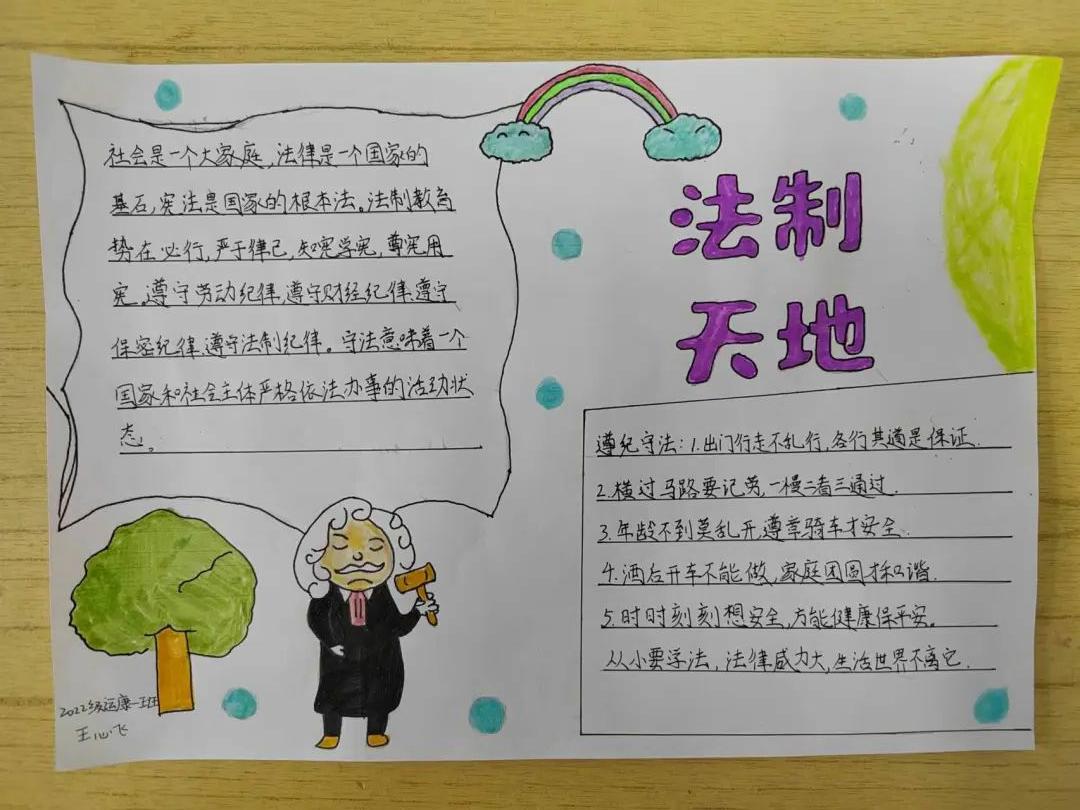 社会是一个大家庭,法律是一个国家的
基石,宪法是国家的根本法。法制教育
势在必行,严于律己,知宪学宪,尊宪用
宪。遵守劳动纪律,遵守财经纪律、遵守
保密纪律、遵守法制纪律。守法意味着一个
国家和社会主体严格依法办事的活动状
态。
法制
天地
遵纪守法:1.出门行走不乱行,各行其道是保证.
2.横过马路要记劳,一慢二看三通过.
3.年龄不到莫乱开,遵章骑车才安全.
4.酒后开车不能做,家庭团圆才和谐.
5.时时刻刻想安全,方能健康保平安。
从小要学法,法律威力大,生活世界不离它.
2022级运康一班
王心飞